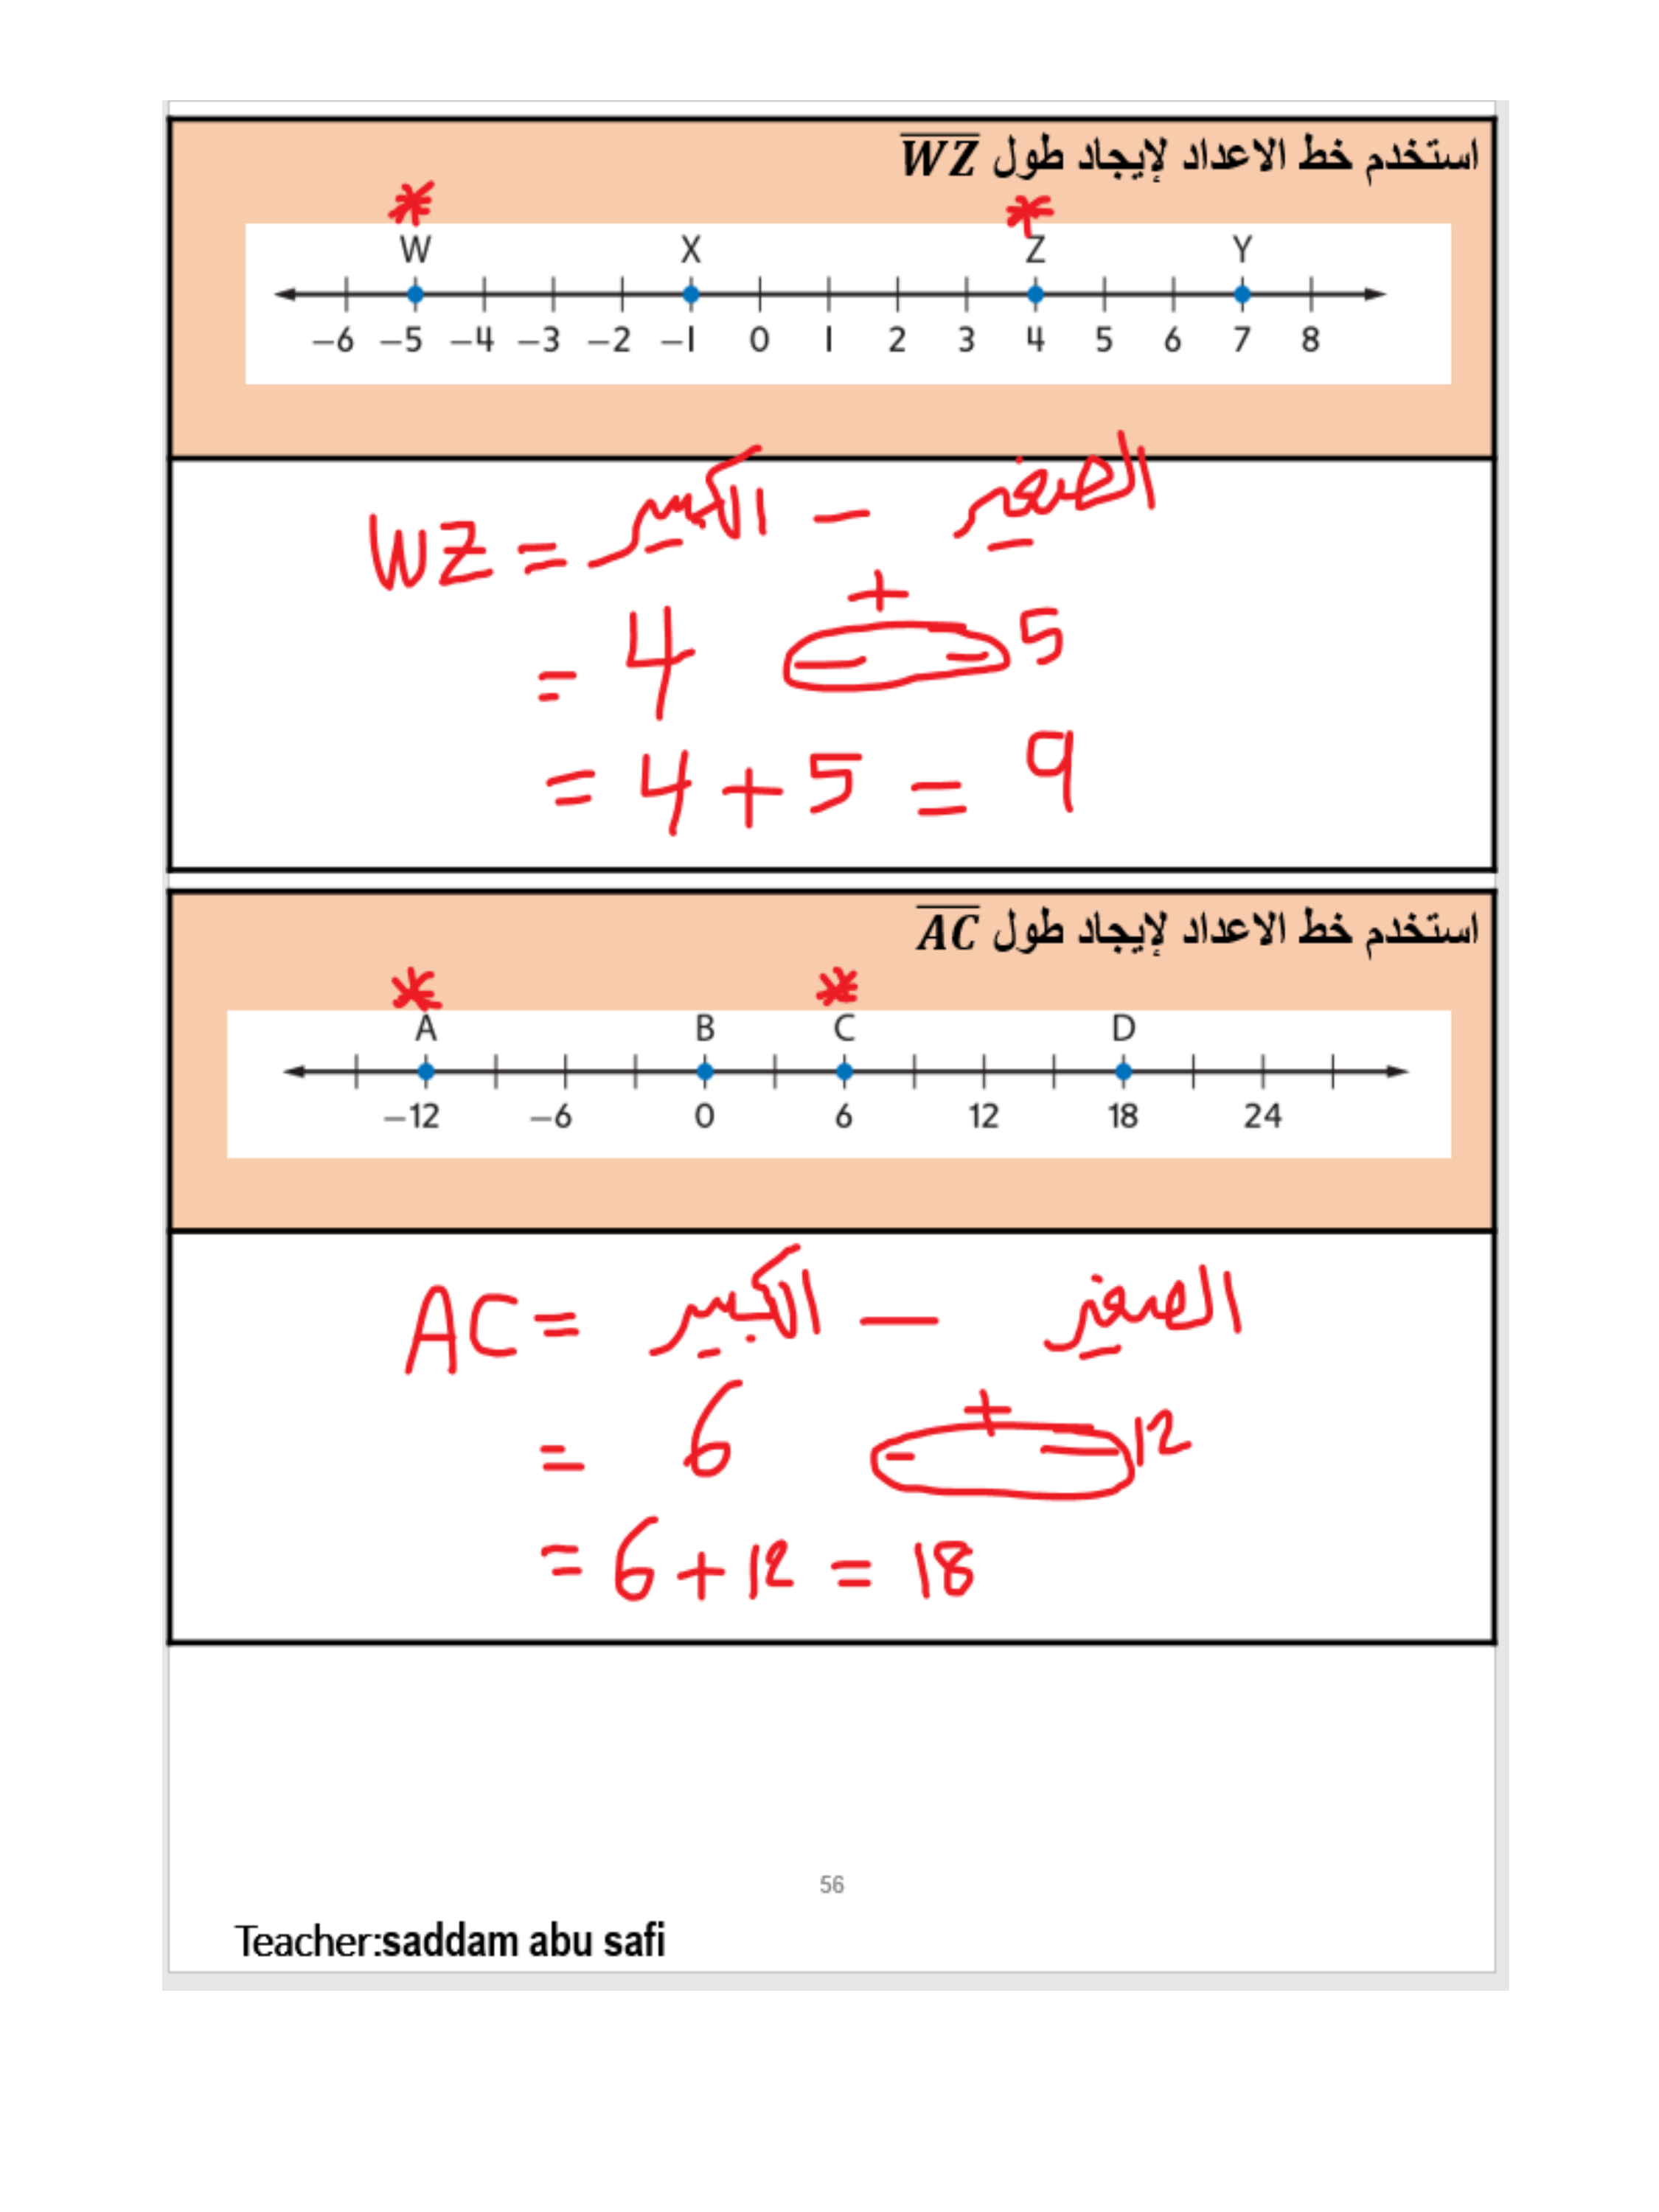 استخدم خط الاعداد لإيجاد طول WZ
W X Z Y
−6 −5 −4 −3 −2 −1 0 1 2 3 4 5 6 7 8
WZ = الكبير − الصغير
+
= 4 − − 5
= 4 + 5 = 9
استخدم خط الاعداد لإيجاد طول AC
A B C D
−12 −6 0 6 12 18 24
AC = الكبير − الصغير
+
= 6 − − 12
= 6 + 12 = 18
56
Teacher:saddam abu safi